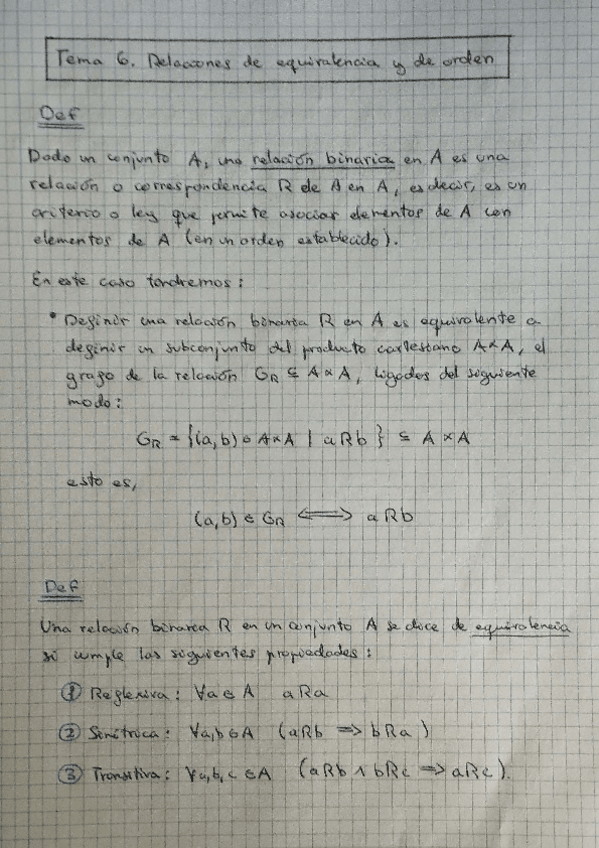 Tema 6. Relaciones de equivalencia y de orden
Def
Dado un conjunto A, una relación binaria en A es una
relación o correspondencia R de A en A, es decir, es un
criterio o ley que permite asociar elementos de A con
elementos de A (en un orden establecido).
En este caso tendremos:
• Definir una relación binaria R en A es equivalente a
definir un subconjunto del producto cartesiano A×A, el
grafo de la relación G_R ⊆ A×A, ligados del siguiente
modo:
G_R = {(a,b) ∈ A×A | aRb} ⊆ A×A
esto es,
(a,b) ∈ G_R ⟺ aRb
Def
Una relación binaria R en un conjunto A se dice de equivalencia
si cumple las siguientes propiedades:
① Reflexiva: ∀a∈A aRa
② Simétrica: ∀a,b∈A (aRb ⟹ bRa)
③ Transitiva: ∀a,b,c∈A (aRb ∧ bRc ⟹ aRc).